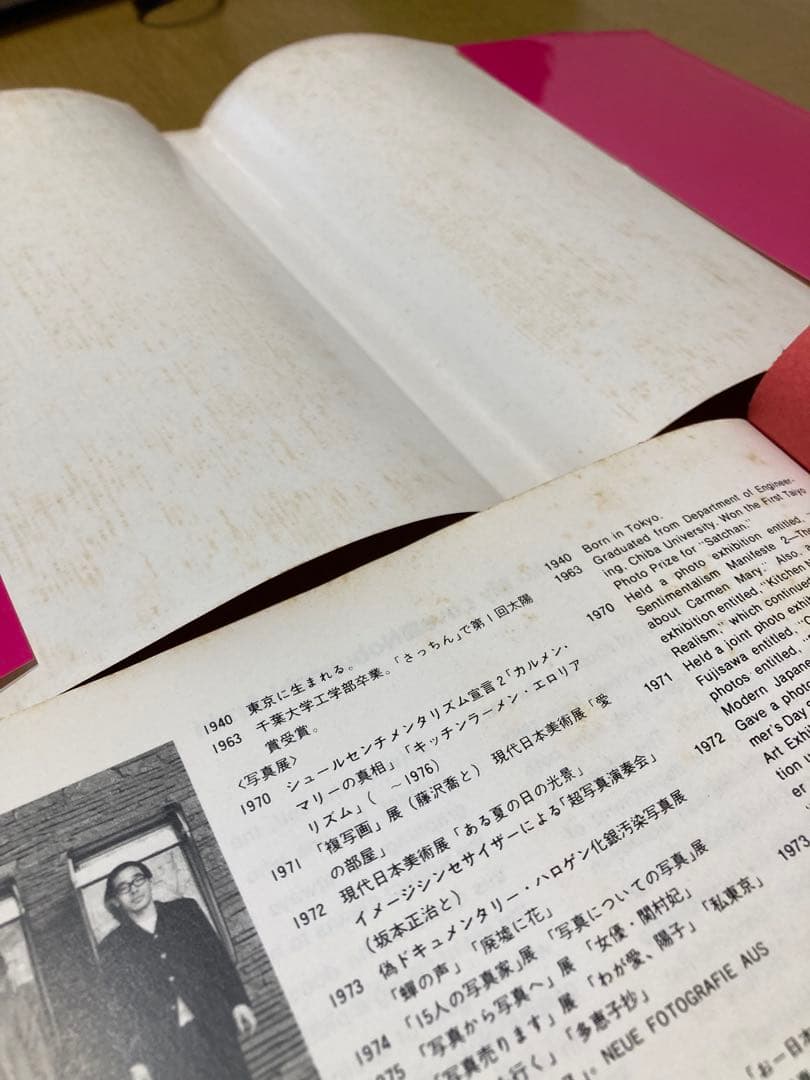 1940 東京に生まれる。
1963 千葉大学工学部卒業。「さっちん」で第1回太陽
賞受賞。
〈写真展〉
1970 シュールセンチメンタリズム宣言2「カルメン・
マリーの真相」「キッチンラーメン・エロリア
リズム」(~1976)
1971 「複写画」展(藤沢喬と) 現代日本美術展「愛
の部屋」
1972 現代日本美術展「ある夏の日の光景」
イメージシンセサイザーによる「超写真演奏会」
(坂本正治と)
1973 偽ドキュメンタリー・ハロゲン化銀汚染写真展
「蟬の声」「廃墟に花」
1974 「15人の写真家」展 「写真についての写真」展
「写真から写真へ」展 「女優・関村妃」
「写真売ります」展 「わが愛、陽子」「私東京」
行く」「多恵子抄」
NEUE FOTOGRAFIE AUS
1940 Born in Tokyo.
1963 Graduated from Department of Engineer-
ing, Chiba University. Won the First Taiyo
Photo Prize for "Satchan."
1970 Held a photo exhibition entitled
Sentimentalism Manifeste 2—The
about Carmen Mary." Also,
exhibition entitled "Kitchen
Realism," which continued
1971 Held a joint photo
Fujisawa entitled,
photos entitled,
Modern
1972 Gave a
mer's Day
Art
tion
er
1973